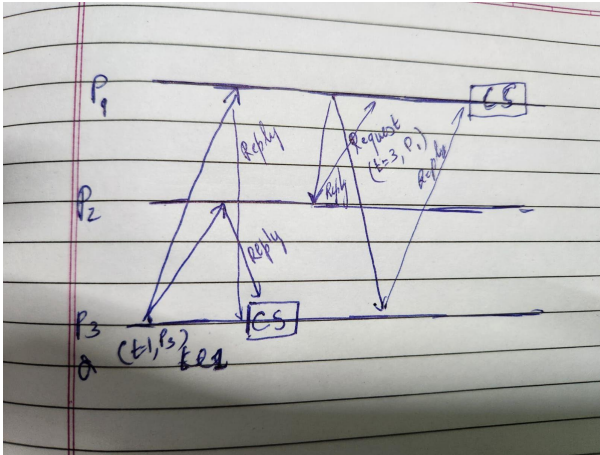 P1
CS
Reply
Request
(t=3, P1)
Reply
Reply
P2
Reply
P3
CS
(t1, P3)